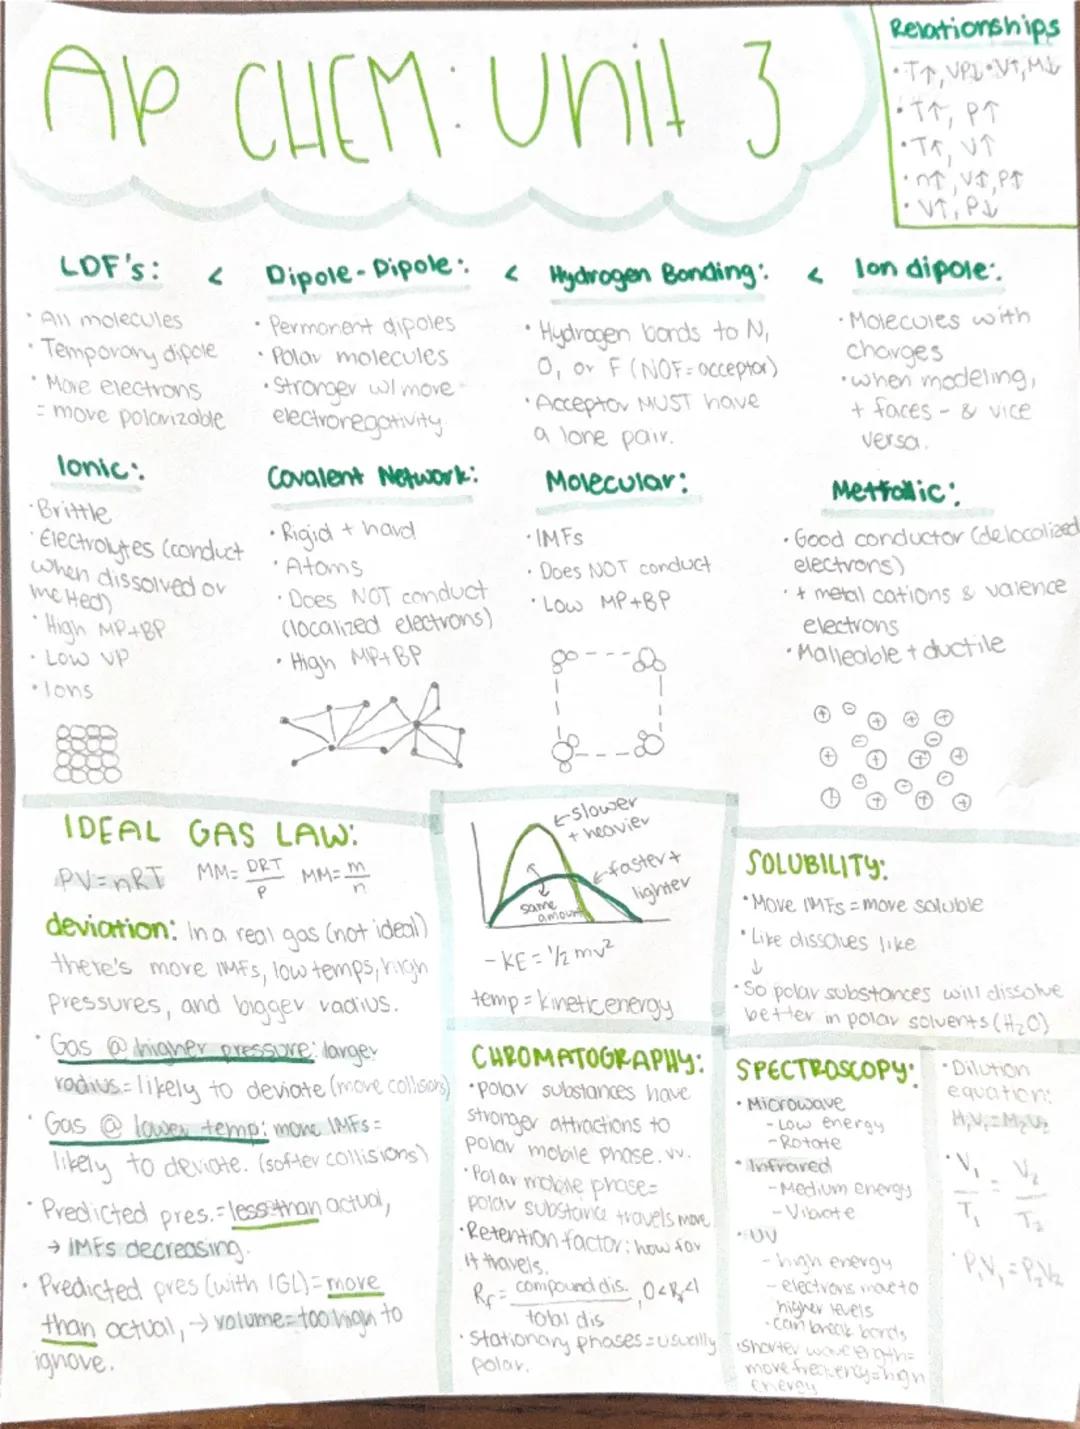 AP CHEM: Unit 3
Relationships
• T↑, VP↓ • V↑, M↓
• T↑, P↑
• T↑, V↑
• n↑, V↑, P↑
• V↑, P↓
LDF's: < Dipole-Dipole: < Hydrogen Bonding: < Ion dipole:
• All molecules
• Temporary dipole
• More electrons
= more polarizable
• Permanent dipoles
• Polar molecules
• Stronger w/ more
electronegativity
• Hydrogen bonds to N,
O, or F (NOF=acceptor)
• Acceptor MUST have
a lone pair.
• Molecules with
charges
• when modeling,
+ faces - & vice
versa.
Ionic:
• Brittle
• Electrolytes (conduct
when dissolved or
melted)
• High MP+BP
• Low VP
• Ions
Covalent Network:
• Rigid + hard
• Atoms
• Does NOT conduct
(localized electrons)
• High MP+BP
Molecular:
• IMFs
• Does NOT conduct
• Low MP+BP
Mettallic:
• Good conductor (delocalized
electrons)
• + metal cations & valence
electrons
• Malleable + ductile
IDEAL GAS LAW:
PV=nRT MM=DRT/P MM=m/n
deviation: In a real gas (not ideal)
there's more IMFs, low temps, high
pressures, and bigger radius.
• Gas @ higher pressure: larger
radius=likely to deviate (more collisions)
• Gas @ lower temp: more IMFs=
likely to deviate. (softer collisions)
• Predicted pres.=less than actual,
→ IMFs decreasing.
• Predicted pres (with IGL)=more
than actual, → volume=too high to
ignore.
←slower
+ heavier
←faster+
lighter
same
amount
- KE=½mv²
temp=kinetic energy
CHROMATOGRAPHY:
• polar substances have
stronger attractions to
polar mobile phase. vv.
• Polar mobile phase=
polar substance travels more
• Retention factor: how far
it travels.
Rf= compound dis. , 0<Rf<1
total dis
• Stationary phases=usually
polar.
SOLUBILITY:
• More IMFs=more soluble
• Like dissolves like
↓
• So polar substances will dissolve
better in polar solvents (H₂O)
SPECTROSCOPY:
• Microwave
- Low energy
- Rotate
• Infrared
- Medium energy
- Vibrate
• UV
- high energy
- electrons move to
higher levels
- can break bonds
shorter wavelength=
more frequency=high
energy
• Dilution
equation:
M₁V₁=M₂V₂
• V₁/T₁ = V₂/T₂
• P₁V₁=P₂V₂